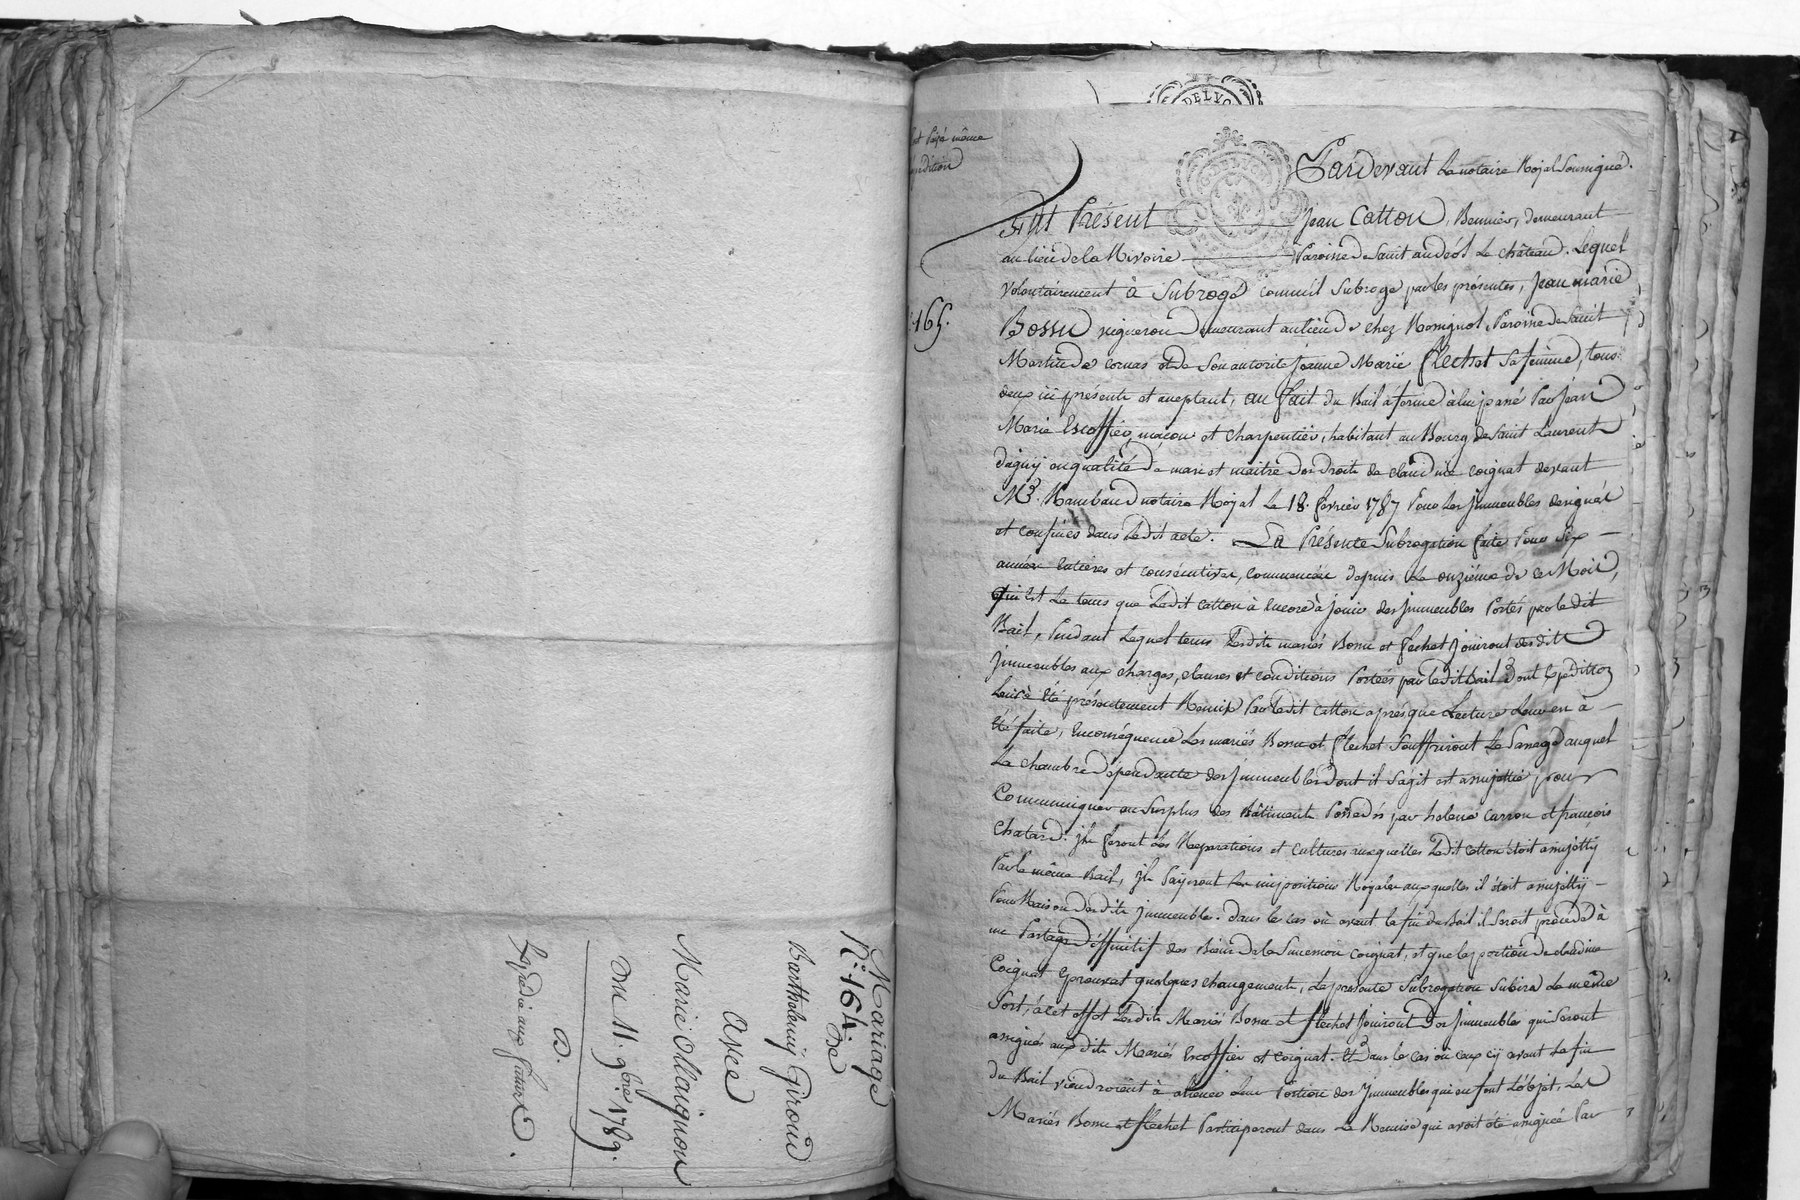 Mariage
N.° 164. De
Barthelemy Giroud
Avec
Marie Olicignon
Du 11. 9bre. 1789.
D.
Expedié aux futurs.
est Payé même
condition
165.
DELYON
Pardevant Le notaire Royal Soussigné.
Fut Présent Jean Catton, Bennier, demeurant
au lieu de la Rivoire Paroisse de Saint andéol Le château. Lequel
volontairement à Subrogé comme il Subroge par les présentes, Jean marie
Bossu vigneron Demeurant au lieu de chez Rossignol, Paroisse de Saint
Martin de cornas et de Son autorité Jeanne Marie flechet Sa femme, tous
deux ici présents et acceptant, au fait du Bail à ferme à lui passé Par Jean
Marie Escoffier, macon et charpentier, habitant au Bourg de Saint Laurent
dagny en qualité De mari et maitre des Droits de claudine coignat devant
Me. Rambaud notaire Royal Le 18. fevrier 1787 Pour les Immeubles designés
et confinés dans Ledit acte. La Présente Subrogation faite Pour Six
années Entieres et consécutives, commencées depuis Le onzième de ce Mois,
qui Est Le tems que Ledit Catton à Encore à jouir des Immeubles Portés par ledit
Bail, Pendant Lequel tems Lesdits mariés Bossu et flechet Jouiront desdits
Immeubles aux charges, clauses et conditions Portées par ledit bail Dont Expédition
Leur à Eté présentement Remise Par Ledit Catton après que Lecture Leur en à
Eté faite, En conséquence Les mariés Bossu et flechet Souffriront Le Passage auquel
La chambre Dependante des Immeubles Dont il S'agit est assujettie, pour
Communiquer au Surplus des Bâtiments Possedés par helene Carron et françois
Chatard. Ils feront Les Reparations et cultures auxquelles Ledit Catton étoit assujetty
Par le même Bail, Ils Payeront Les impositions Royales auxquelles il étoit assujetty
Pour Raison desdits Immeubles. Dans le cas où avant la fin du Bail il Seroit procédé à
un Partage Déffinitif des Biens de la Succession Coignat, et que la portion de claudine
Coignat Eprouvat quelques changements, La présente Subrogation Subira Le même
Sort, à cet effet Lesdits Mariés Bossu et flechet Jouiront Des Immeubles qui Seront
assignés auxdits Mariés Escoffier et Coignat. Et Dans le cas où ceux cy avant La fin
du Bail viendroient à aliener Leur Portion des Immeubles qui en font L'objet, Les
Mariés Bossu et flechet Participeront dans La Remise qui avoit été assignée Par